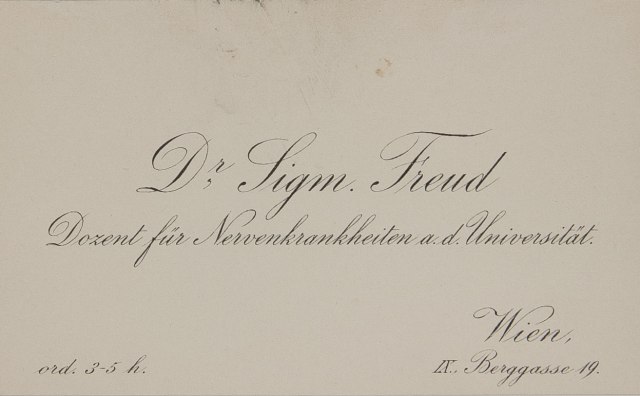 Dr. Sigm. Freud
Dozent für Nervenkrankheiten a. d. Universität.
Wien,
ord. 3-5 h.
IX., Berggasse 19.